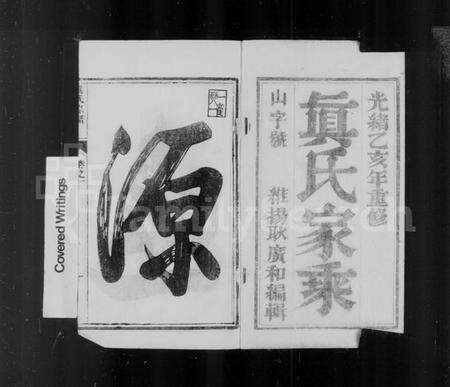 光緒乙亥年重修
真氏家乘
山字號
維揚耿廣和編輯
源
Covered Writings